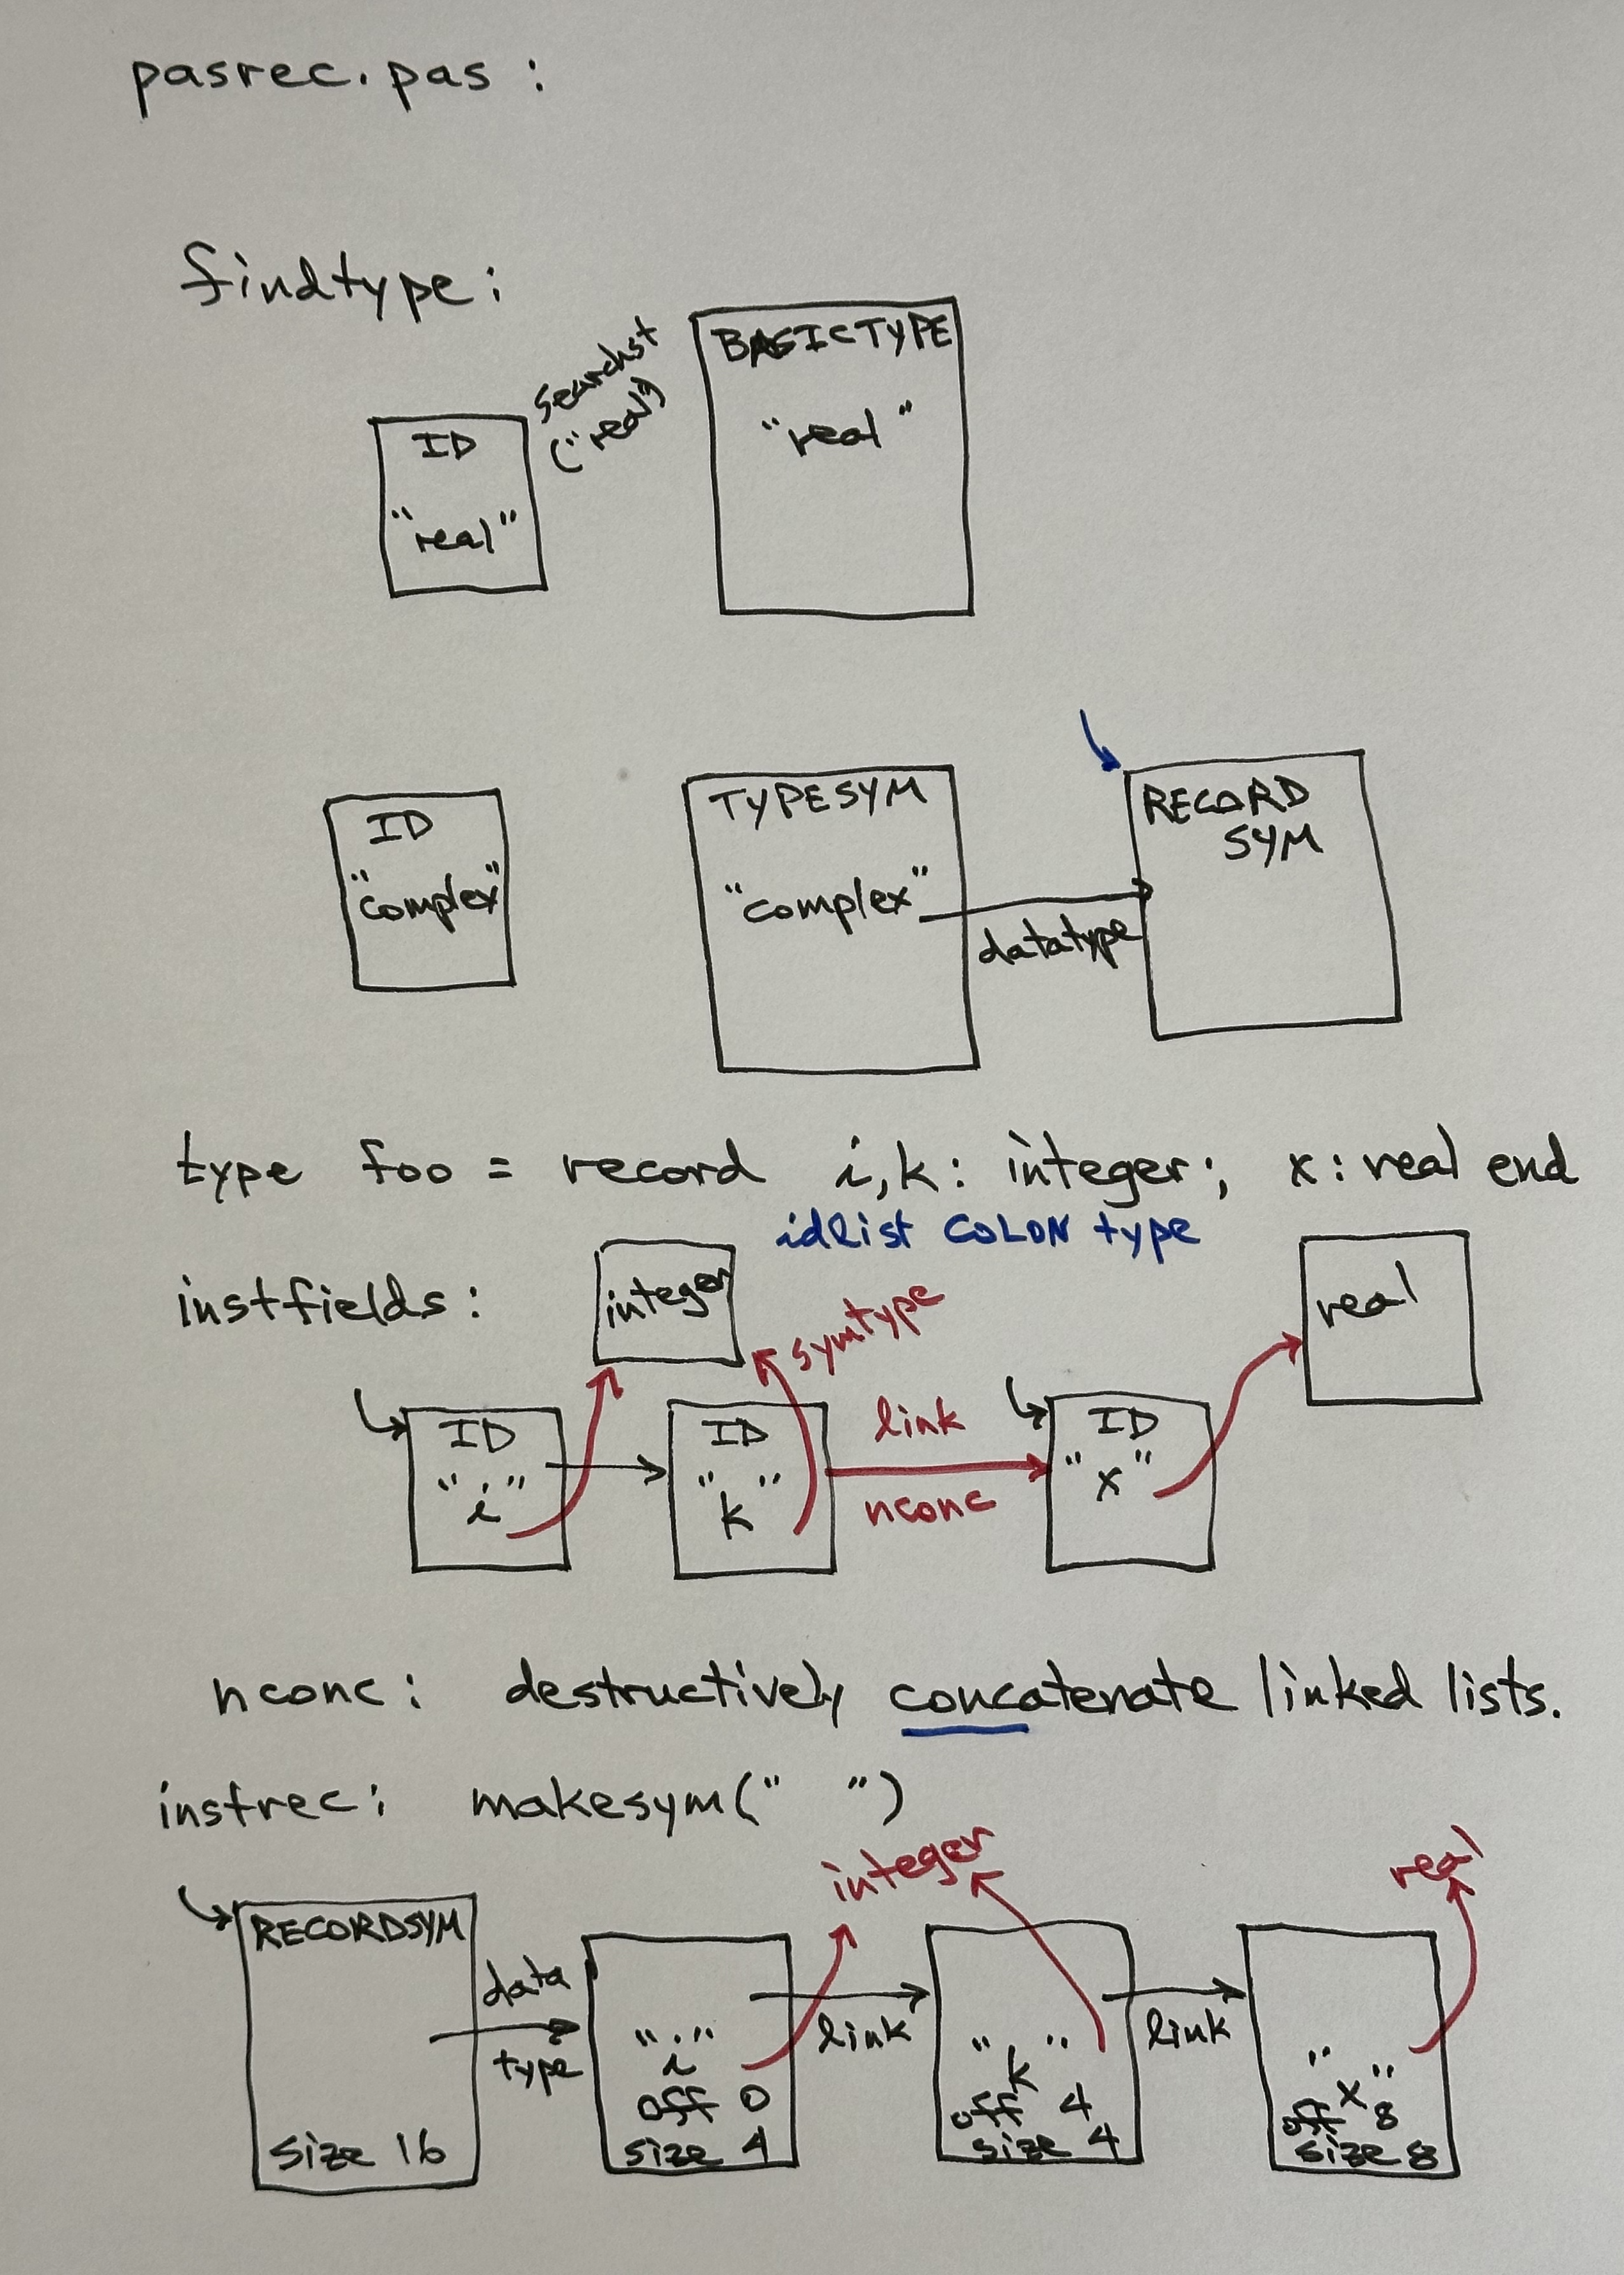 pasrec.pas :
findtype:
searchst
("real")
BASICTYPE
"real"
ID
"real"
ID
"complex"
TYPESYM
"complex"
datatype
RECORD
SYM
type foo = record i,k: integer; x: real end
idlist COLON type
instfields:
integer
symtype
real
ID
"i"
ID
"k"
link
nconc
ID
"x"
nconc: destructively concatenate linked lists.
instrec: makesym(" ")
integer
real
RECORDSYM
size 16
data
type
"i"
off 0
size 4
link
"k"
off 4
size 4
link
"x"
off 8
size 8